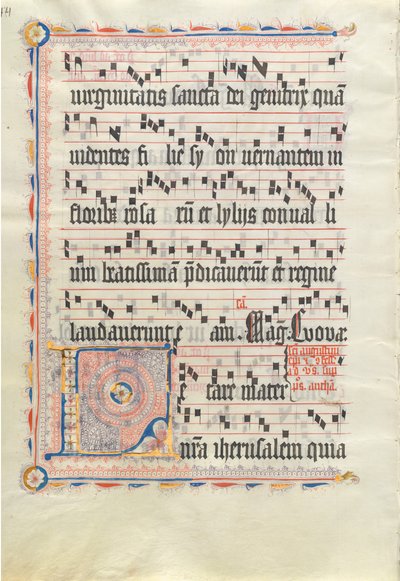 uirginitatis sancta dei genitrix quā
uidentes fi lie sy on uernantem in
floribꝫ rosa rū et lylijs conual li
um beatissimā p̄dicauerūt et regine
laudauerunt e am. Mag̃. Euouae.
sci augustini
Letare mater
p̄s. anthā.
nr̄a iherusalem quia